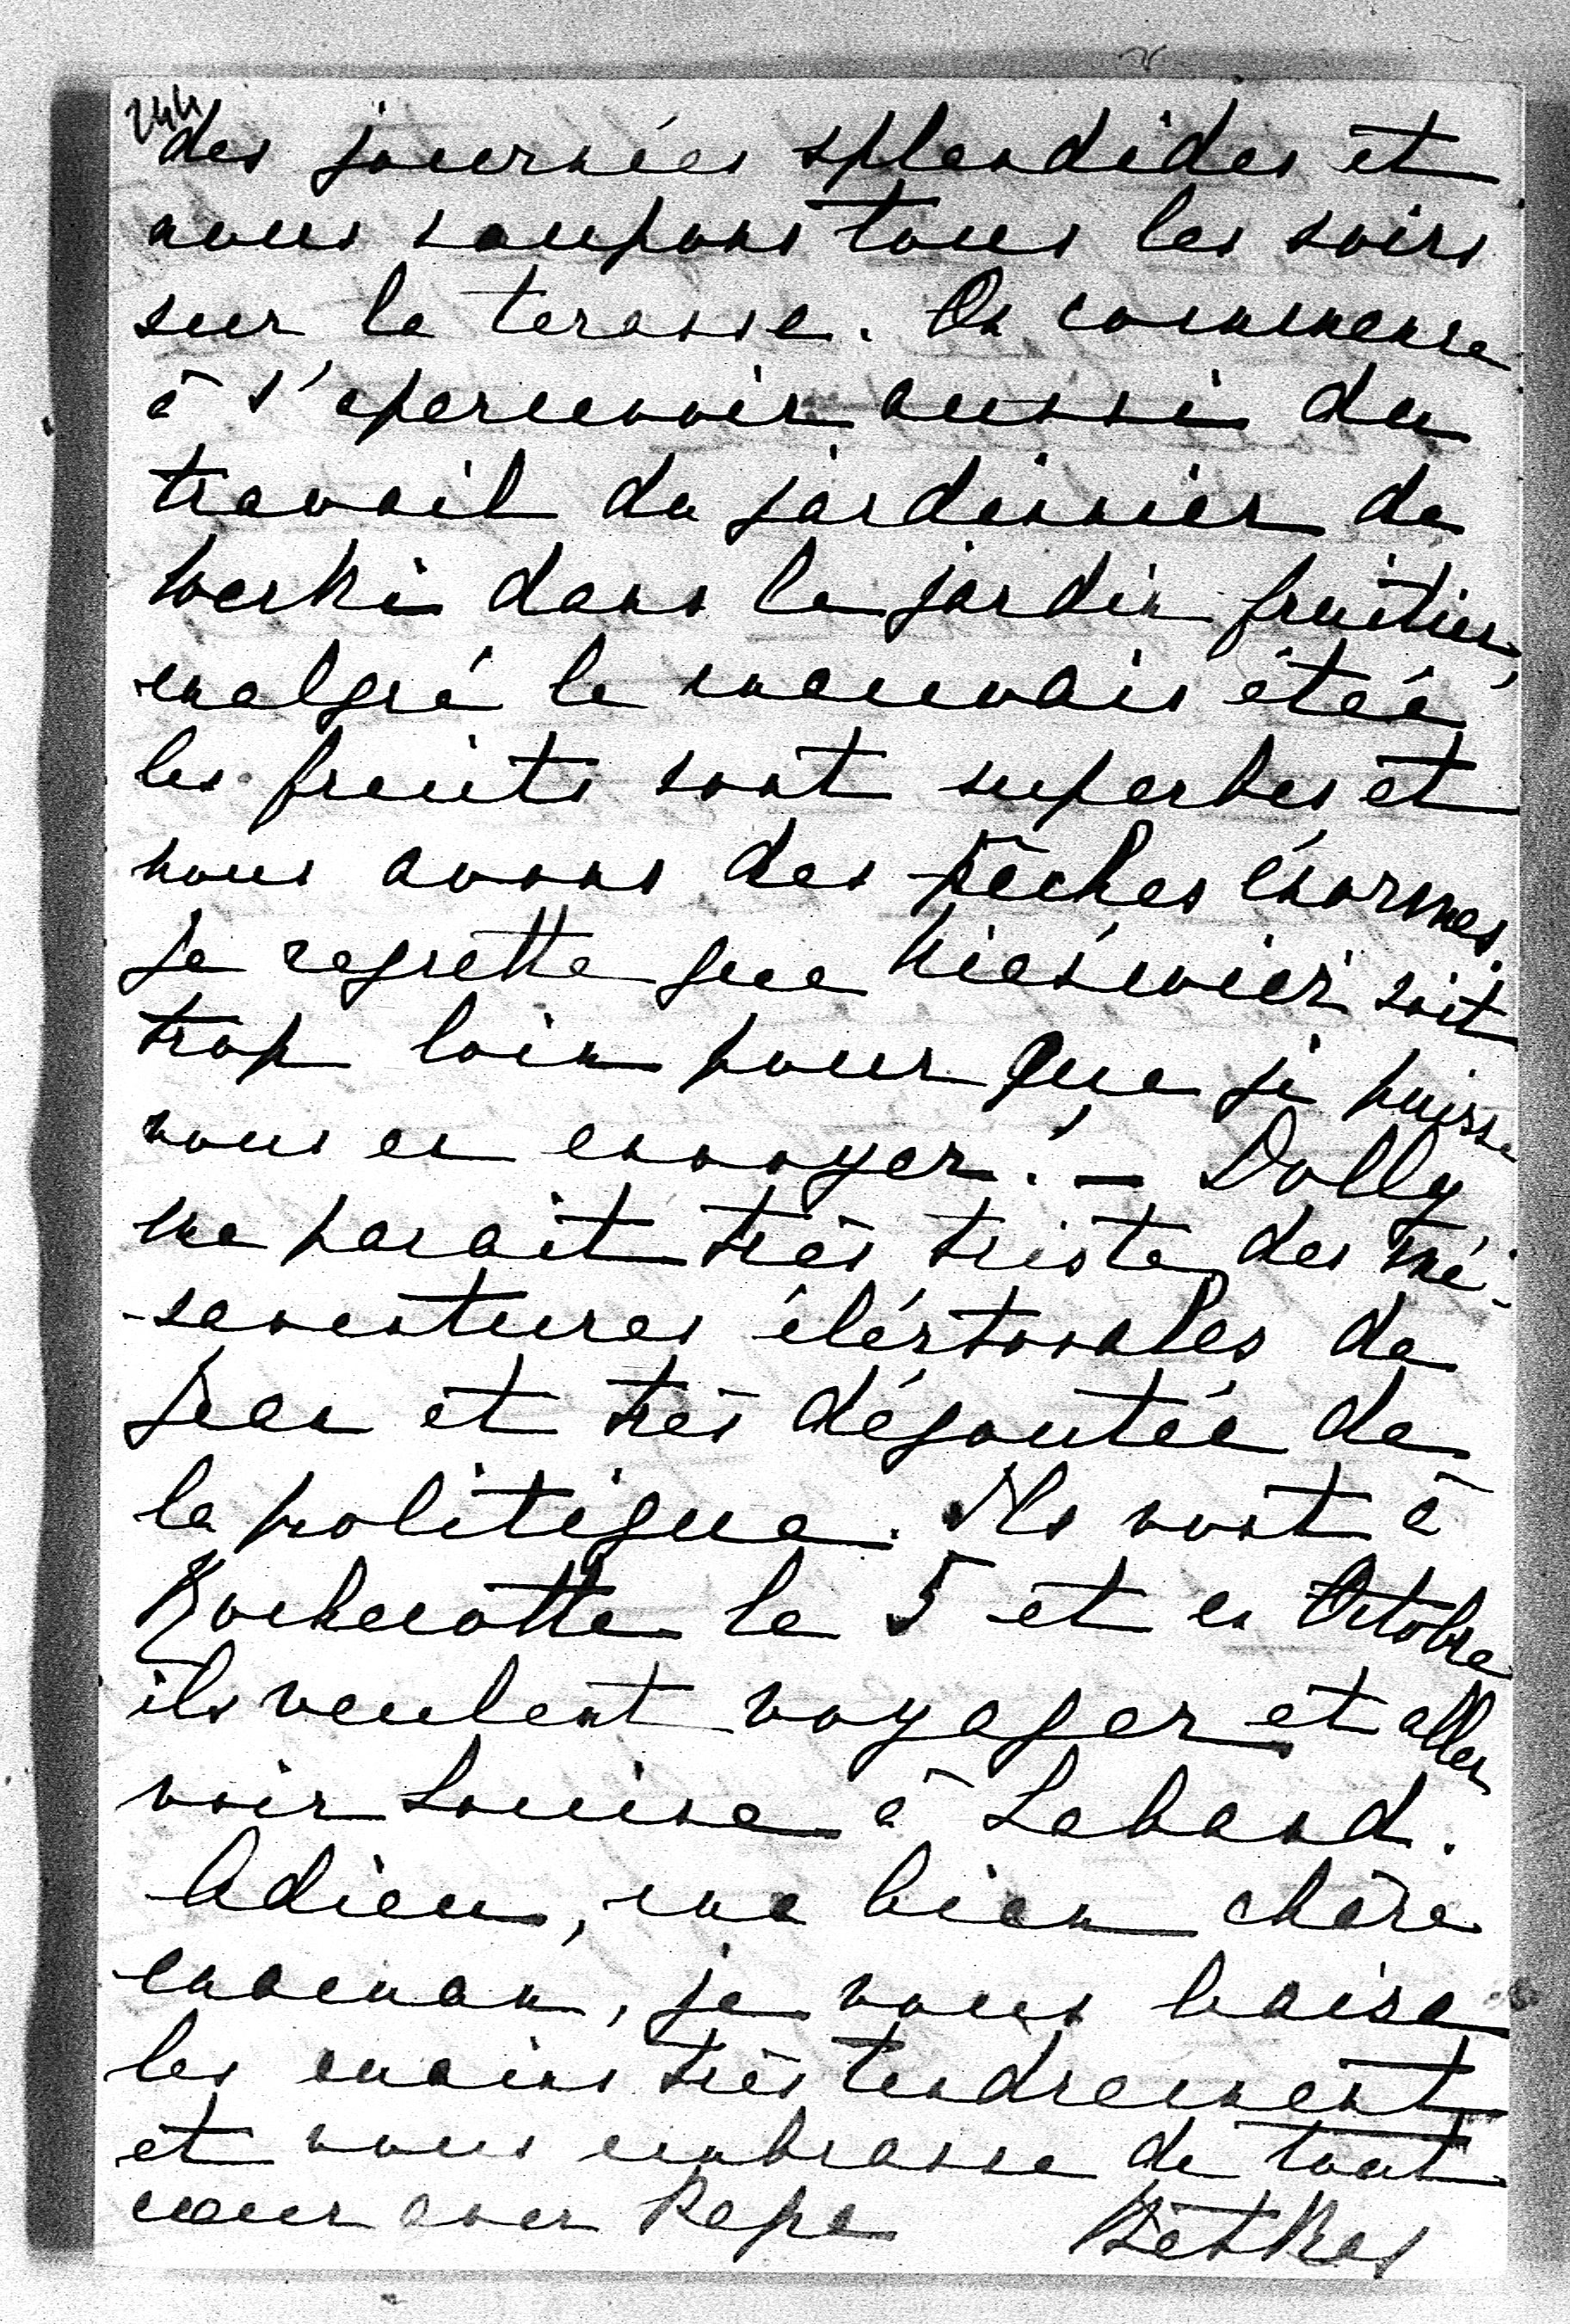 244
des journées splendides et
nous soupons tous les soirs
sur la terasse. On commence
à s'apercevoir aussi du
travail du jardinnier de
Werki dans le jardin fruitier,
malgré le mauvais étée
les fruits sont superbes et
nous avons des pêches énormes.
Je regrette que Nieswier soit
trop loin pour que je puisse
vous en envoyer. — Dolly
me parait très triste des mé-
-saventures éléctorales de
Jean et très dégoutée de
la politique. Ils vont à
Rochecotte le 5 et en Octobre
ils veulent voyager et aller
voir Louise à Laband.
Adieu, ma bien chère
maman, je vous baise
les mains très tendrement
et vous embrasse de tout
cœur avec Papa